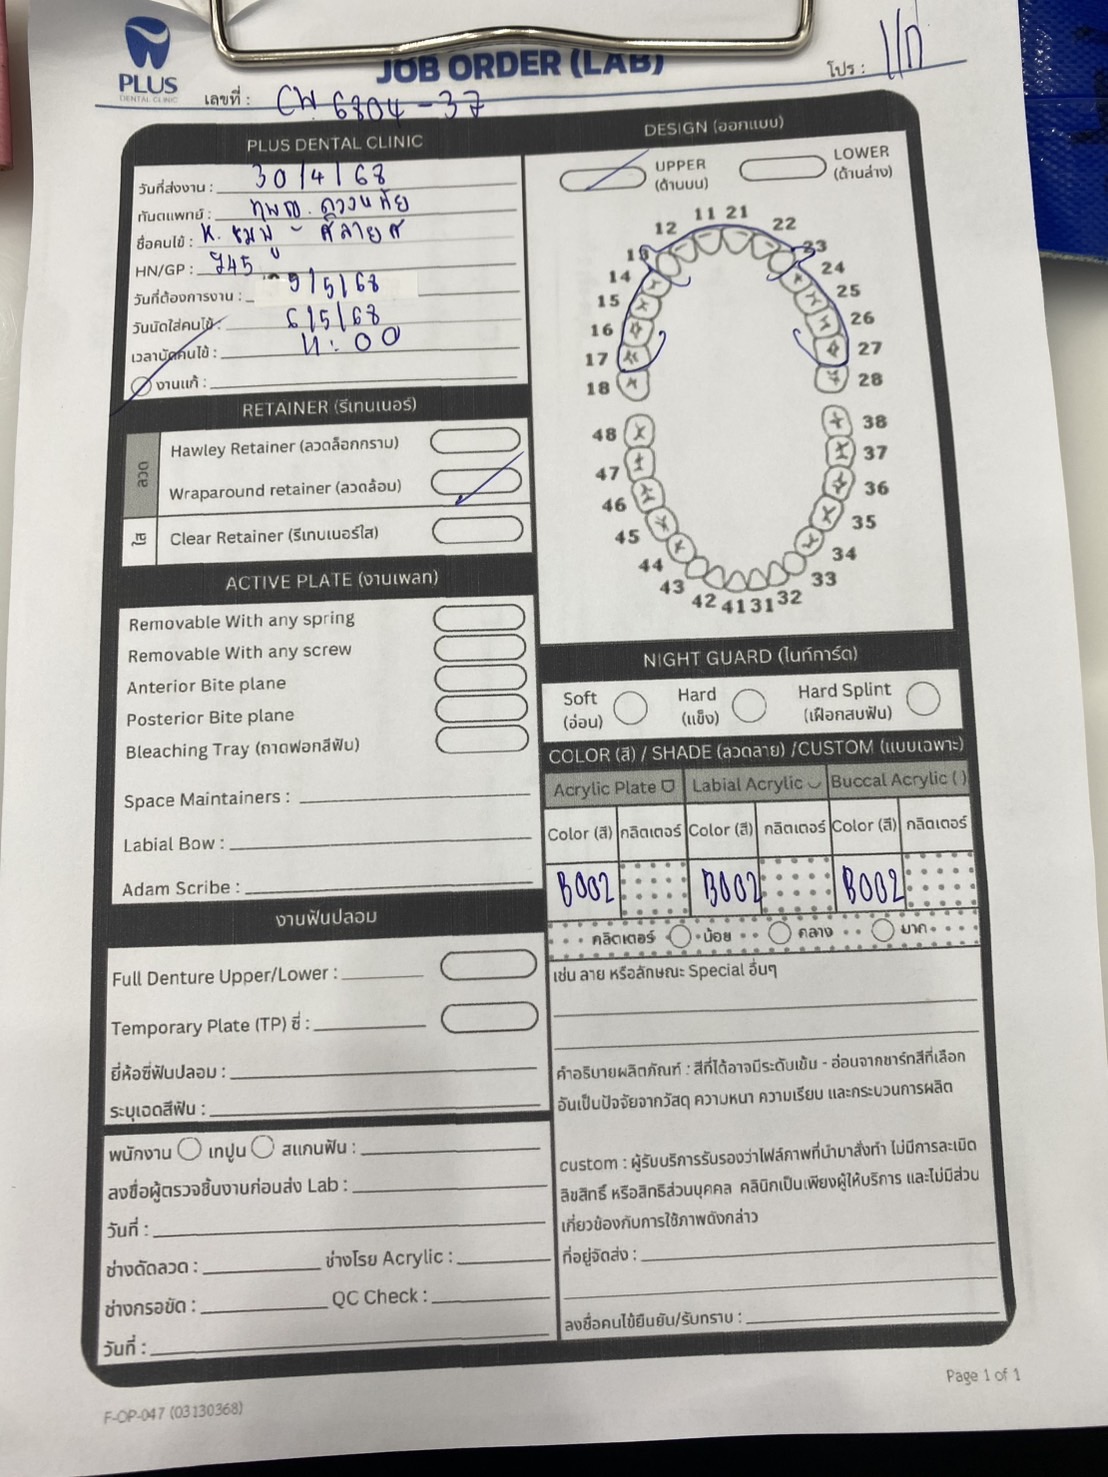 PLUS
DENTAL CLINIC
JOB ORDER (LAB)
โปร :
เลขที่ : CW 6804-37
PLUS DENTAL CLINIC
วันที่ส่งงาน : 30/4/68
ทันตแพทย์ : ทพญ.
ชื่อคนไข้ : K. ชมพู -
HN/GP : 745
วันที่ต้องการงาน : 5/5/68
วันนัดใส่คนไข้ : 6/5/68
เวลานัดคนไข้ : 11:00
งานแก้ :
RETAINER (รีเทนเนอร์)
ลวด
Hawley Retainer (ลวดล็อกกราบ)
Wraparound retainer (ลวดล้อม)
ใส
Clear Retainer (รีเทนเนอร์ใส)
ACTIVE PLATE (งานเพลท)
Removable With any spring
Removable With any screw
Anterior Bite plane
Posterior Bite plane
Bleaching Tray (ถาดฟอกสีฟัน)
Space Maintainers :
Labial Bow :
Adam Scribe :
งานฟันปลอม
Full Denture Upper/Lower :
Temporary Plate (TP) ซี่ :
ยี่ห้อซี่ฟันปลอม :
ระบุเฉดสีฟัน :
พนักงาน เทปูน สแกนฟัน :
ลงชื่อผู้ตรวจชิ้นงานก่อนส่ง Lab :
วันที่ :
ช่างดัดลวด : ช่างโรย Acrylic :
ช่างกรอขัด : QC Check :
วันที่ :
DESIGN (ออกแบบ)
UPPER (ด้านบน)
LOWER (ด้านล่าง)
11 21
12 22
13 23
14 24
15 25
16 26
17 27
18 28
48 38
47 37
46 36
45 35
44 34
43 33
42 41 31 32
NIGHT GUARD (ไนท์การ์ด)
Soft (อ่อน)
Hard (แข็ง)
Hard Splint (เฝือกสบฟัน)
COLOR (สี) / SHADE (ลวดลาย) /CUSTOM (แบบเฉพาะ)
Acrylic Plate Labial Acrylic Buccal Acrylic ( )
Color (สี) กลิตเตอร์ Color (สี) กลิตเตอร์ Color (สี) กลิตเตอร์
B002 B002 B002
กลิตเตอร์ น้อย กลาง มาก
เช่น ลาย หรือลักษณะ Special อื่นๆ
คำอธิบายผลิตภัณฑ์ : สีที่ได้อาจมีระดับเข้ม - อ่อนจากชาร์ทสีที่เลือก
อันเป็นปัจจัยจากวัสดุ ความหนา ความเรียบ และกระบวนการผลิต
custom : ผู้รับบริการรับรองว่าไฟล์ภาพที่นำมาสั่งทำ ไม่มีการละเมิด
ลิขสิทธิ์ หรือสิทธิส่วนบุคคล คลินิกเป็นเพียงผู้ให้บริการ และไม่มีส่วน
เกี่ยวข้องกับการใช้ภาพดังกล่าว
ที่อยู่จัดส่ง :
ลงชื่อคนไข้ยืนยัน/รับทราบ :
Page 1 of 1
F-OP-047 (03130368)